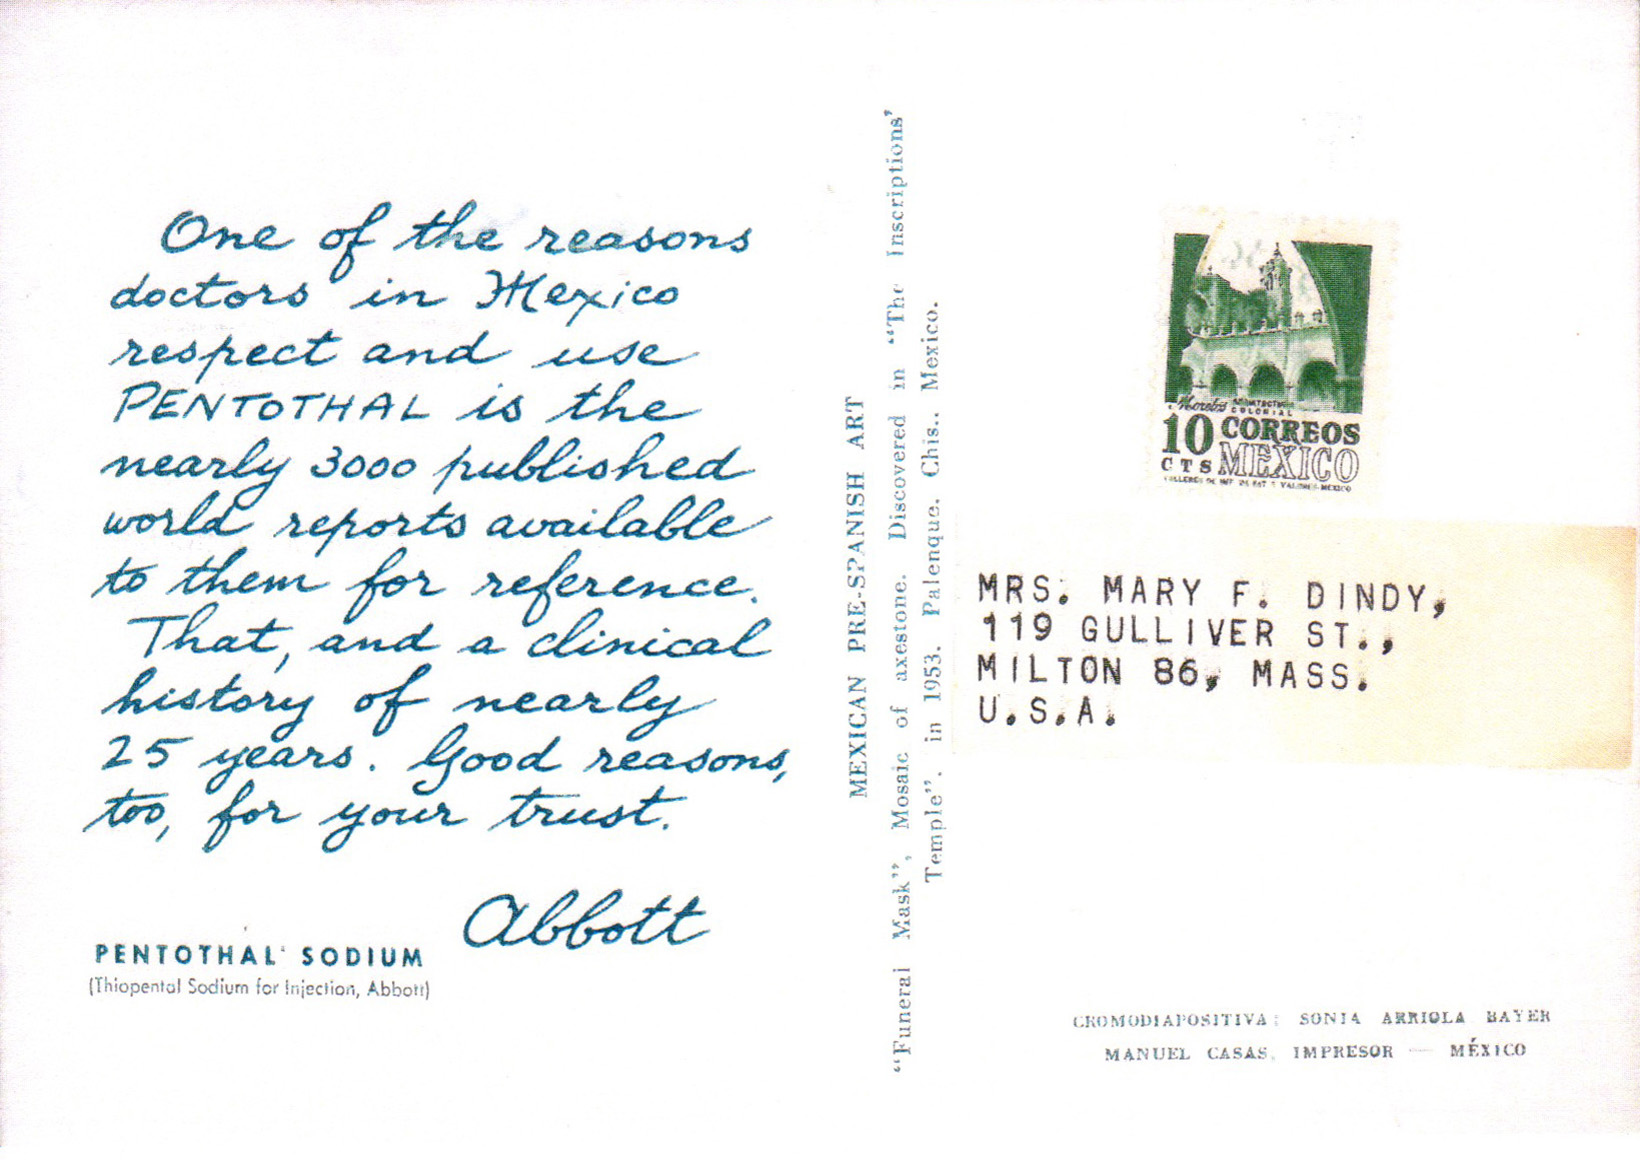 One of the reasons
doctors in Mexico
respect and use
PENTOTHAL is the
nearly 3000 published
world reports available
to them for reference.
That, and a clinical
history of nearly
25 years. Good reasons,
too, for your trust.
Abbott
PENTOTHAL® SODIUM
(Thiopental Sodium for Injection, Abbott)
MEXICAN PRE-SPANISH ART
"Funeral Mask", Mosaic of axestone. Discovered in "The Inscriptions'
Temple". in 1953. Palenque. Chis.. Mexico.
Morelos ARQUITECTURA
COLONIAL
10 CORREOS
CTS MEXICO
TALLERES DE IMP. DE EST. Y VALORES-MEXICO
MRS. MARY F. DINDY,
119 GULLIVER ST.,
MILTON 86, MASS.
U.S.A.
CROMODIAPOSITIVA: SONIA ARRIOLA BAYER
MANUEL CASAS, IMPRESOR — MÉXICO